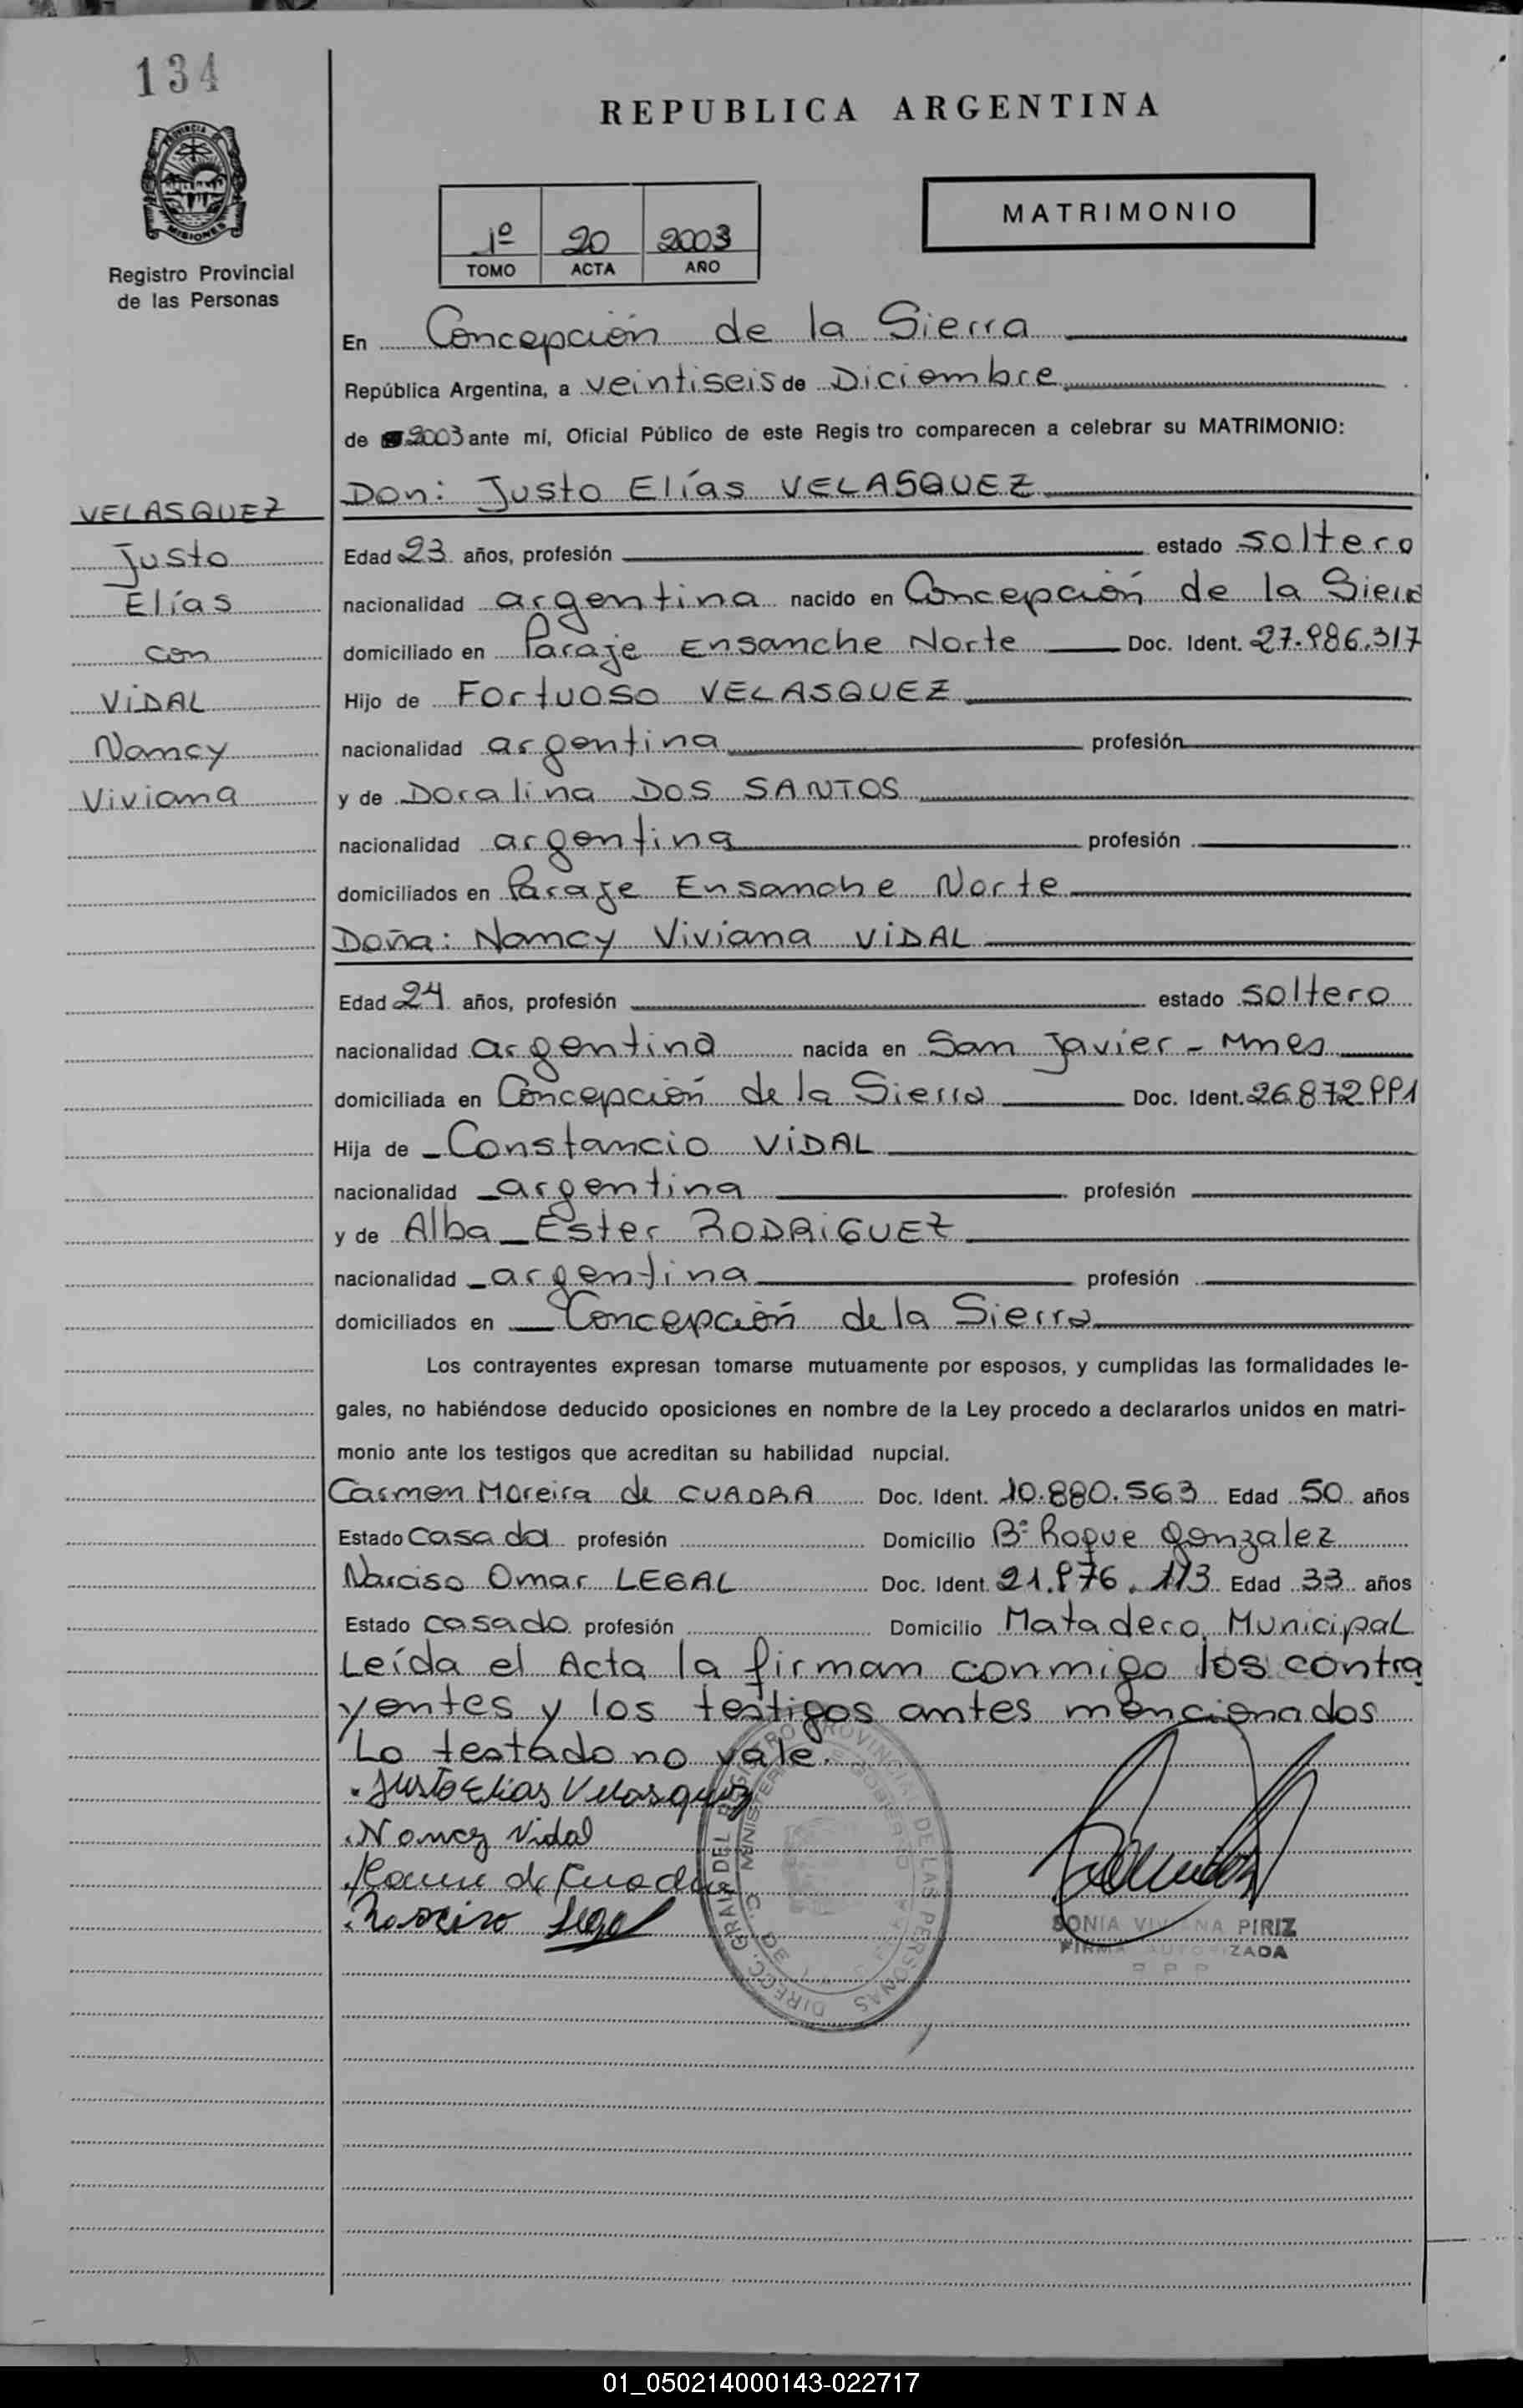 134
REPUBLICA ARGENTINA
PROVINCIA
MISIONES
Registro Provincial
de las Personas
1º 20 2003
TOMO ACTA AÑO
MATRIMONIO
En Concepción de la Sierra
República Argentina, a veintiseis de Diciembre
de 2003 ante mí, Oficial Público de este Regis tro comparecen a celebrar su MATRIMONIO:
VELASQUEZ
Justo
Elías
con
VIDAL
Nancy
Viviana
Don: Justo Elías VELASQUEZ
Edad 23 años, profesión estado soltero
nacionalidad argentina nacido en Concepción de la Sierra
domiciliado en Paraje Ensanche Norte Doc. Ident. 27.986.317
Hijo de Fortuoso VELASQUEZ
nacionalidad argentina profesión
y de Doralina DOS SANTOS
nacionalidad argentina profesión
domiciliados en Paraje Ensanche Norte
Doña: Nancy Viviana VIDAL
Edad 24 años, profesión estado soltero
nacionalidad argentina nacida en San Javier - Mnes
domiciliada en Concepción de la Sierra Doc. Ident. 26.872.991
Hija de Constancio VIDAL
nacionalidad argentina profesión
y de Alba Ester RODRIGUEZ
nacionalidad argentina profesión
domiciliados en Concepción de la Sierra
Los contrayentes expresan tomarse mutuamente por esposos, y cumplidas las formalidades le-
gales, no habiéndose deducido oposiciones en nombre de la Ley procedo a declararlos unidos en matri-
monio ante los testigos que acreditan su habilidad nupcial.
Carmen Moreira de CUADRA Doc. Ident. 10.880.563 Edad 50 años
Estado casada profesión Domicilio Bº Roque Gonzalez
Narciso Omar LEGAL Doc. Ident. 21.976.113 Edad 33 años
Estado casado profesión Domicilio Matadero Municipal
Leída el Acta la firman conmigo los contra
yentes y los testigos antes mencionados
Lo testado no vale.
Justo Elias Velasquez
Nancy Vidal
de Cuadra
Narciso Legal
DIRECC. GRAL. DEL REGISTRO PROVINCIAL DE LAS PERSONAS
MINISTERIO DE GOBIERNO
SONIA VIVIANA PIRIZ
FIRMA AUTORIZADA
R P P
01_050214000143-022717